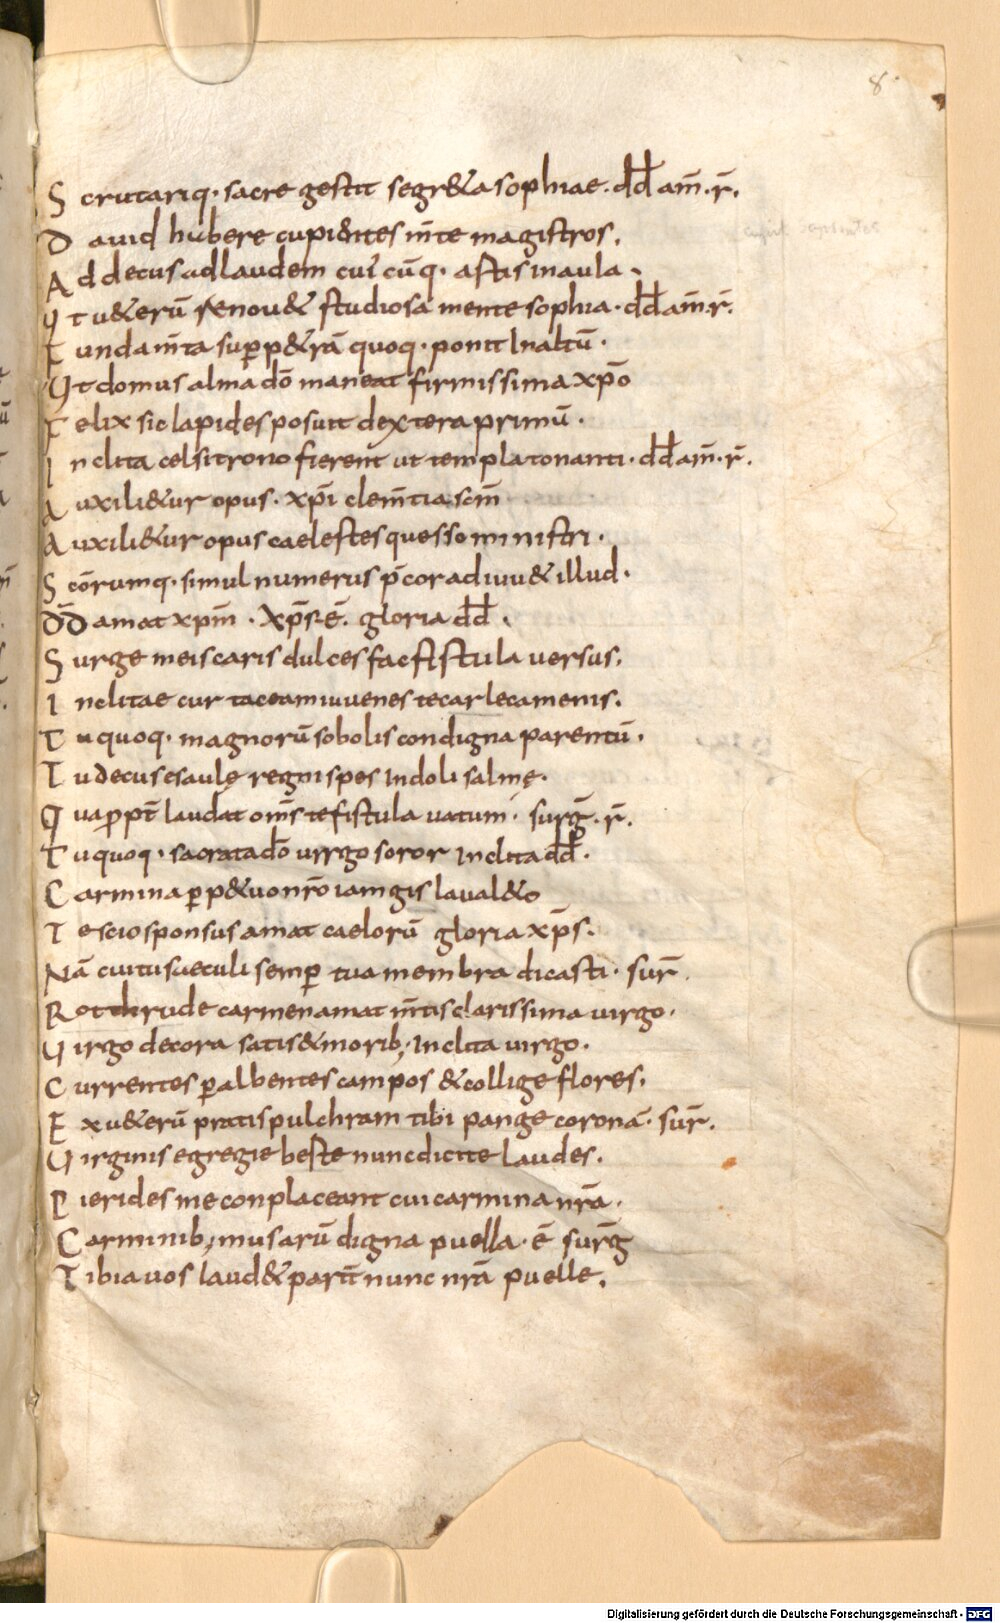 8
S crutariq· sacre gestit segr&a sophiae. dd̄ am̄. r̄.
D auid hubere cupi&ntes m̄te magistros.
A d decus ad laudem cuī cūq· astis in aula.
U t u&erū renou& studiosa mente sophia. dd̄ am̄. r̄.
F undam̄ta sup̄ p&rā quoq· ponit In altū.
U t domus alma dō maneat firmissima xp̄o
F elix sic lapides posuit dextera primū.
I nclita celsitrono fierent ut templa tonanti. dd̄ am̄. r̄.
A uxili&ur opus. xp̄i clem̄tia scm̄
A uxili&ur opus caelestes quesso ministri.
S cōrumq· simul numerus p̄cor adiuu& illud.
D̄D amat xpm̄. Xp̄s ē. gloria dd̄.
S urge meis caris dulces fac fistula uersus.
I nclitae cur taceam iuuenes te carle camenis.
T u quoq· magnorū sobolis condigna parentū.
T u decus es aulę regni spes Indolis almę.
Q uapp̄t laudat om̄s te fistula uatum. surḡ. r̄.
T u quoq· sacrata dō uirgo soror Inclita dd̄.
C armina p̄p&uo nr̄o iam gis laua l&o
T e scio sponsus amat caelorū gloria xp̄s.
N ā cui tu saeculi semp̄ tua membra dicasti. sur̄.
R otthrude carmen amat m̄tis clarissima uirgo.
U irgo decora satis & morib; Inclita uirgo.
C urrentes p̄ albentes campos & collige flores.
E x u&erū pratis pulchram tibi pange coronā. sur̄.
U irginis egregie beste nunc dicite laudes.
P ierides me conplaceant cui carmina nr̄a.
C arminib; musarū digna puella. ē surḡ
T ibia uos laud& parit̄ nunc nr̄a puelle.
Digitalisierung gefördert durch die Deutsche Forschungsgemeinschaft - DFG